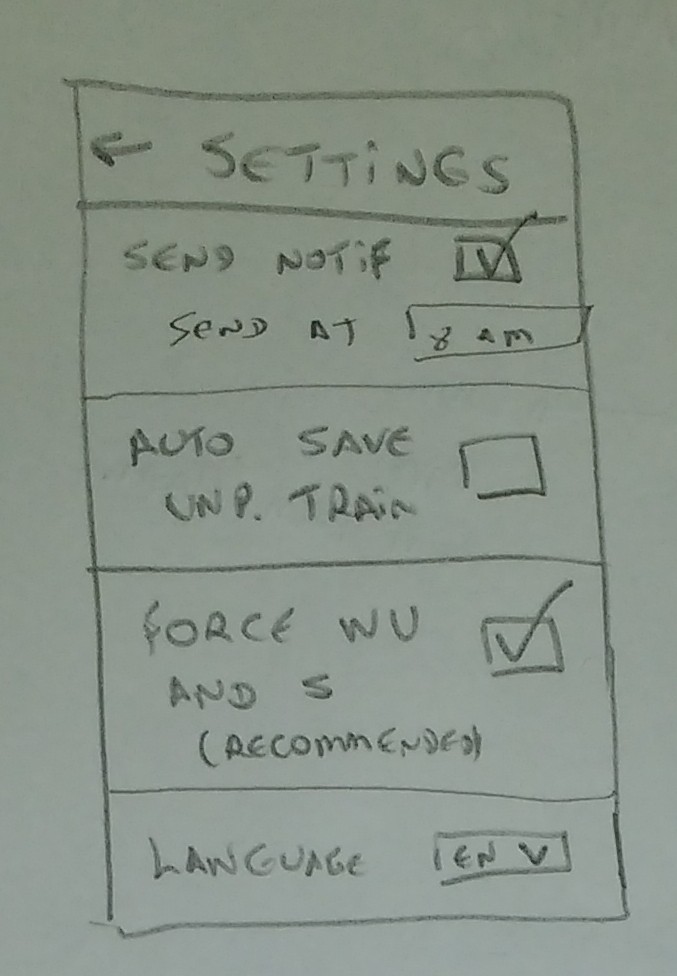 ← SETTINGS
SEND NOTIF
SEND AT 8 AM
AUTO SAVE
UNP. TRAIN
FORCE WU
AND S
(RECOMMENDED)
LANGUAGE EN